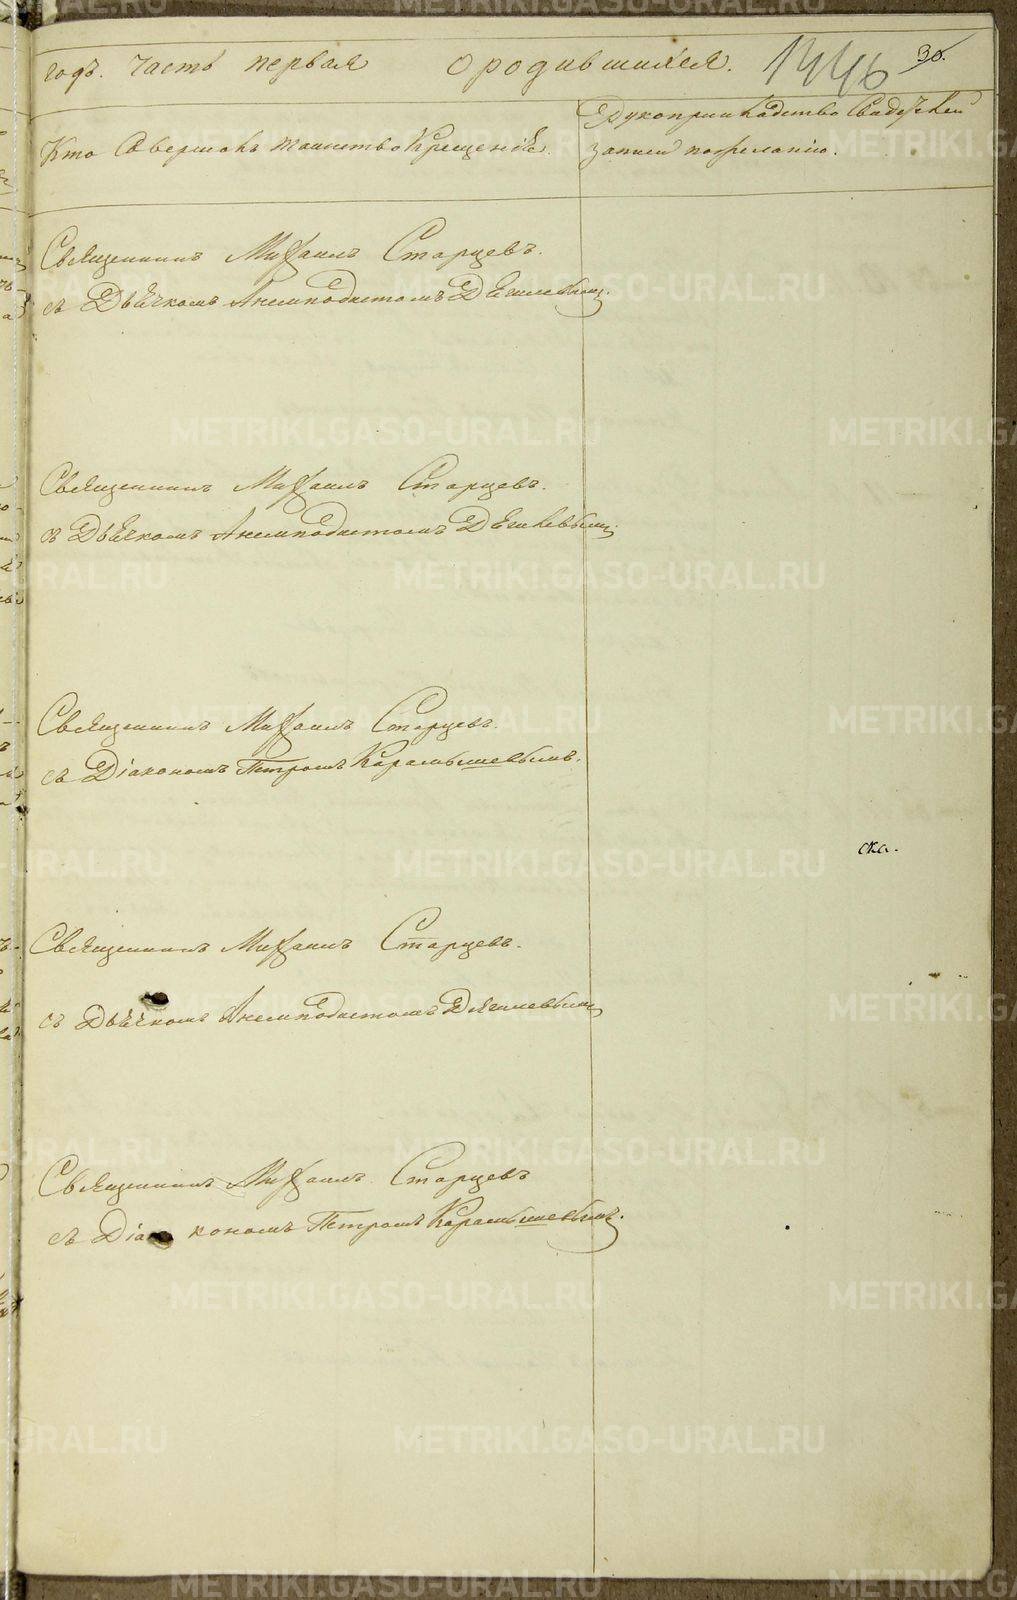 годъ. часть первая о родившихся. 1446 30.
Кто Совершалъ таинство Крещенія.
Рукоприкладство Свидѣтелей
записи по желанію.
Священникъ Михаилъ Старцевъ.
съ Дьячкомъ Анемподистомъ Дягилевымъ.
Священникъ Михаилъ Старцевъ.
съ Дьячкомъ Анемподистомъ Дягилевымъ.
Священникъ Михаилъ Старцевъ.
съ Діакономъ Петромъ Карамышевымъ.
ска.
Священникъ Михаилъ Старцевъ.
съ Дьячкомъ Анемподистомъ Дягилевымъ
Священникъ Михаилъ Старцевъ
съ Діакономъ Петромъ Карамышевымъ.
METRIKI.GASO-URAL.RU